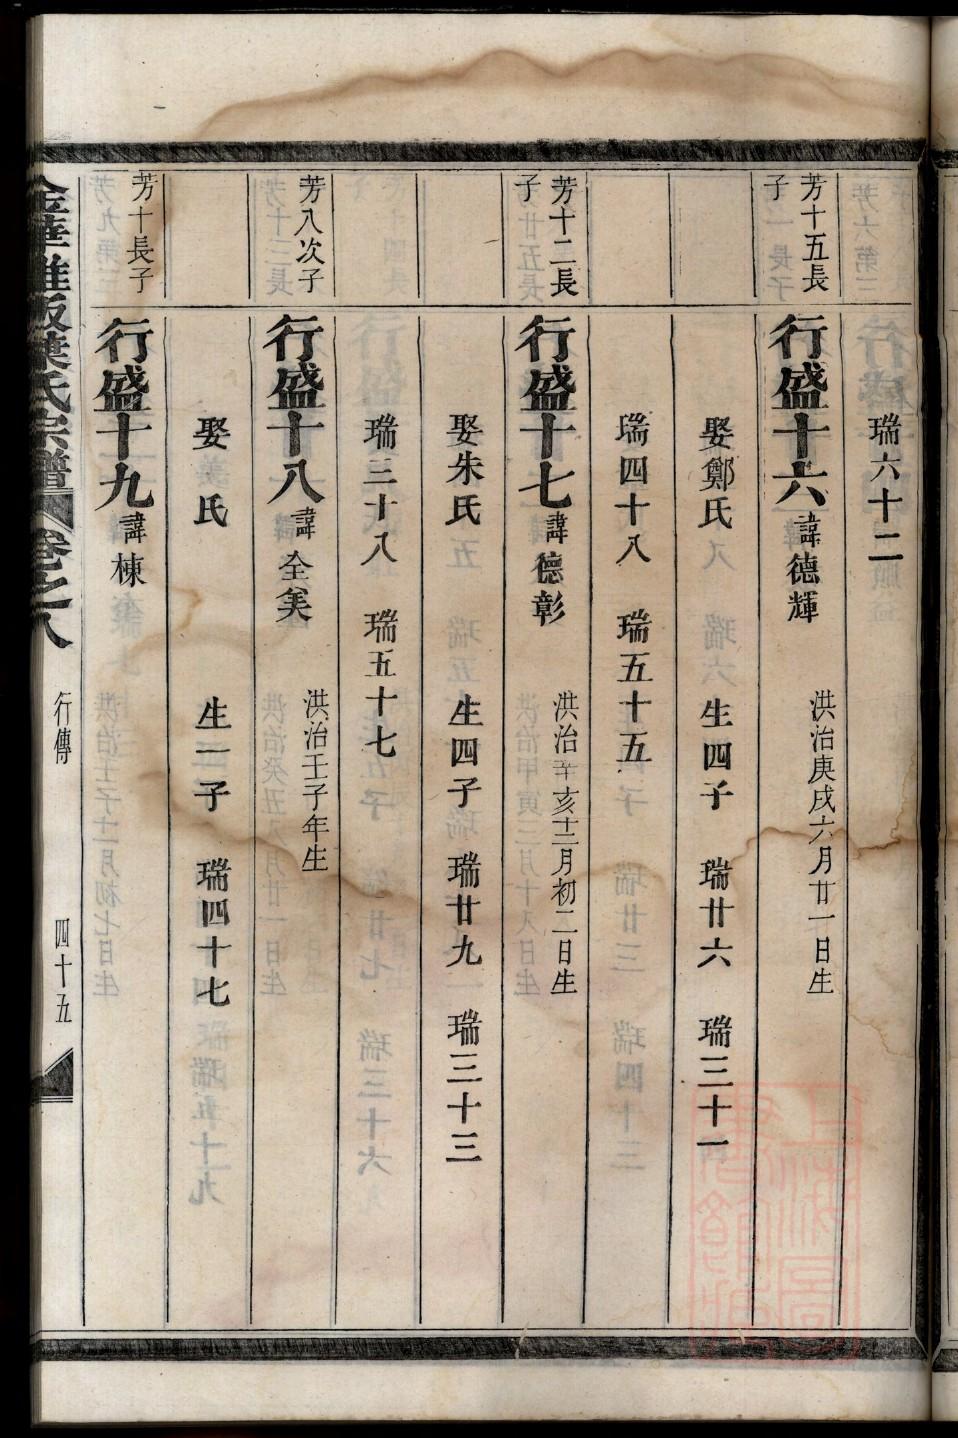 瑞六十二
芳十五長子
行盛十六 諱德輝 洪治庚戌六月廿一日生
娶鄭氏 生四子 瑞廿六 瑞三十一
瑞四十八 瑞五十五
芳十二長子
行盛十七 諱德彰 洪治辛亥十二月初二日生
娶朱氏 生四子 瑞廿九 瑞三十三
瑞三十八 瑞五十七
芳八次子
行盛十八 諱全美 洪治壬子年生
娶氏 生一子 瑞四十七
芳十長子
行盛十九 諱棟
葉氏宗譜 卷之八 行傳 四十五